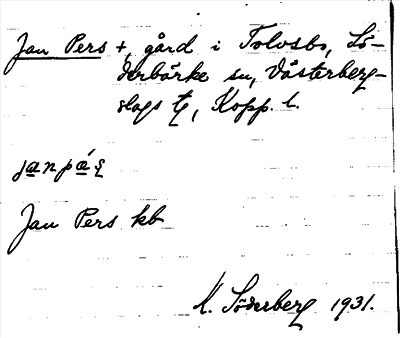 Jan Pers +, gård i Tolvsbo, Sö-
derbärke sn, Västerberg-
slags tg, Kopp. l.
janpás
Jan Pers kb
K. Söderberg 1931.